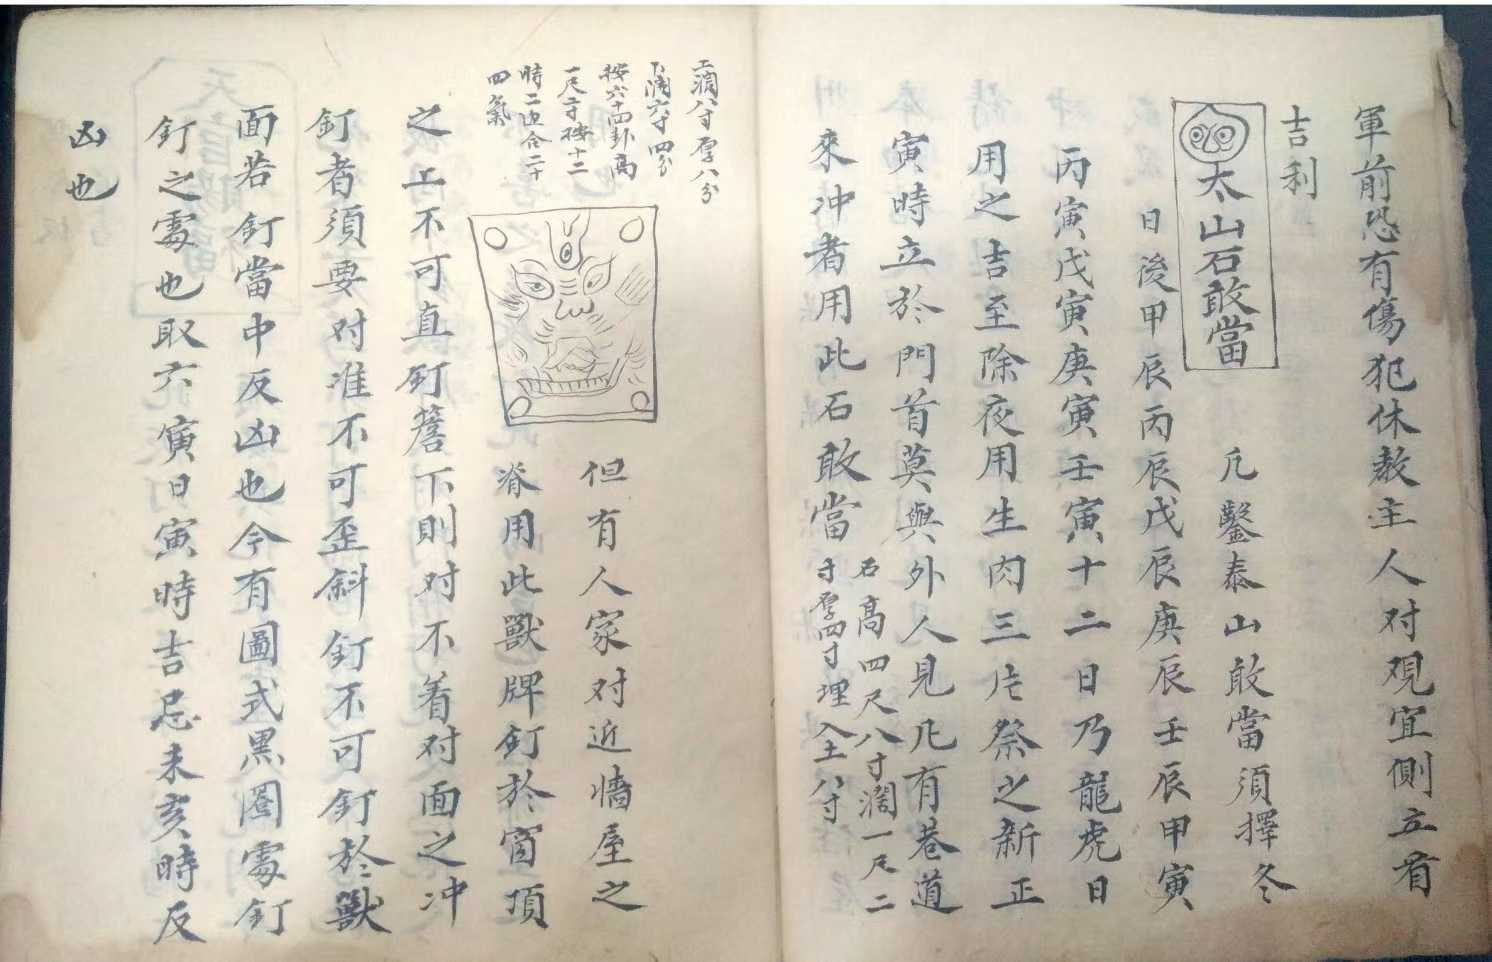 軍前恐有傷犯休教主人对观宜側立有
吉利
太山石敢當
凡鑿泰山敢當須擇冬
日後甲辰丙辰戊辰庚辰壬辰甲寅
丙寅戊寅庚寅壬寅十二日乃龍虎日
用之吉至除夜用生肉三片祭之新正
寅時立於門首莫與外人見凡有巷道
來冲者用此石敢當
石高四尺八寸濶一尺二
寸厚四寸埋入土八寸
上濶八寸厚八分
下濶六寸四分
按六十四卦高
一尺二寸按十二
時二边合二十
四氣
但有人家对近墻屋之
脊用此獸牌釘於窗頂
之上不可真釘簷下則对不着对面之冲
釘者須要对准不可歪斜釘不可釘於獸
面若釘當中反凶也今有圖式黑圈䖏釘
釘之䖏也取六寅日寅時吉忌未亥時反
凶也